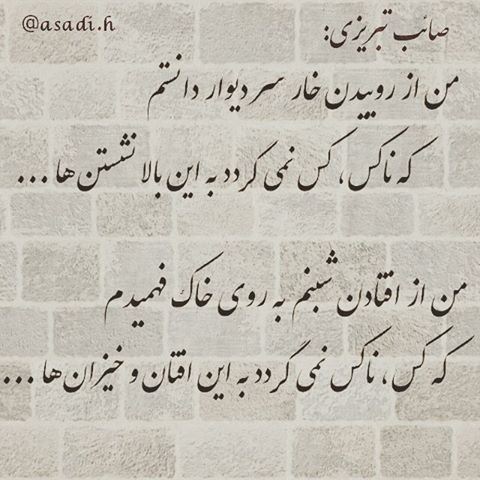 @asadi.h
صائب تبریزی:
من از روییدن خار سر دیوار دانستم
که ناکس، کس نمی گردد به این بالا نشستن‌ها ...
من از افتادن شبنم به روی خاک فهمیدم
که کس، ناکس نمی گردد به این افتان و خیزان‌ها ...